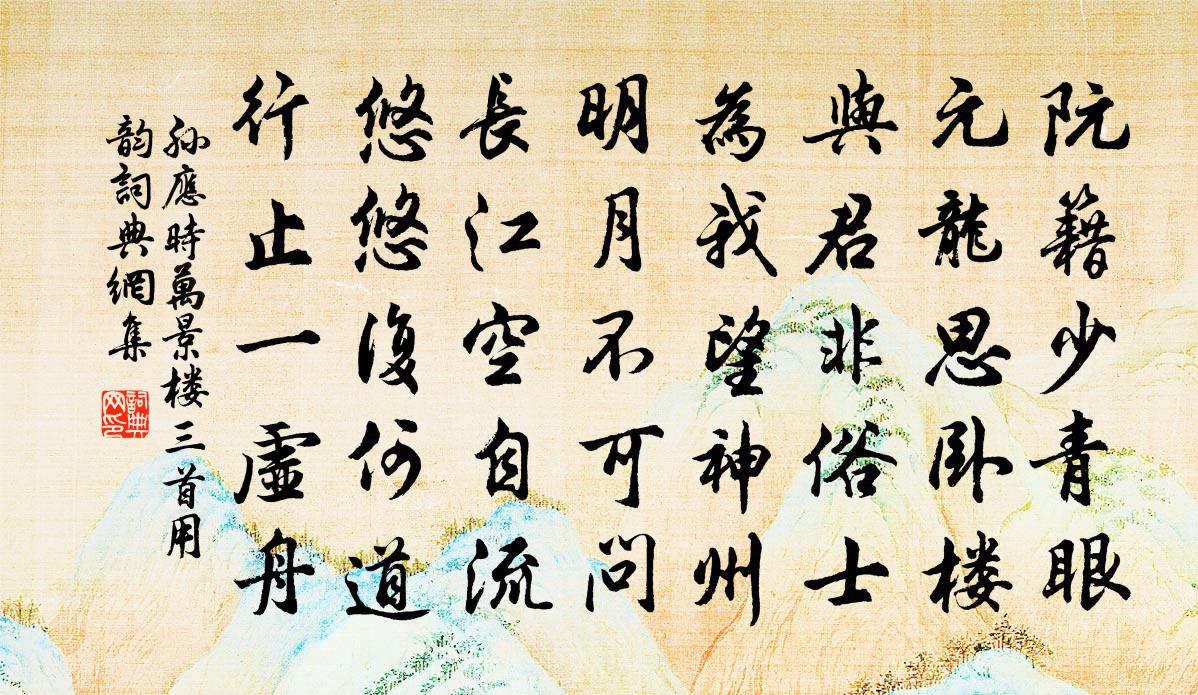 阮籍少青眼
元龍思卧楼
與君非俗士
為我望神州
明月不可问
長江空自流
悠悠復何道
行止一虛舟
孙應時萬景楼三首用
韵詞典網集
詞典
网印